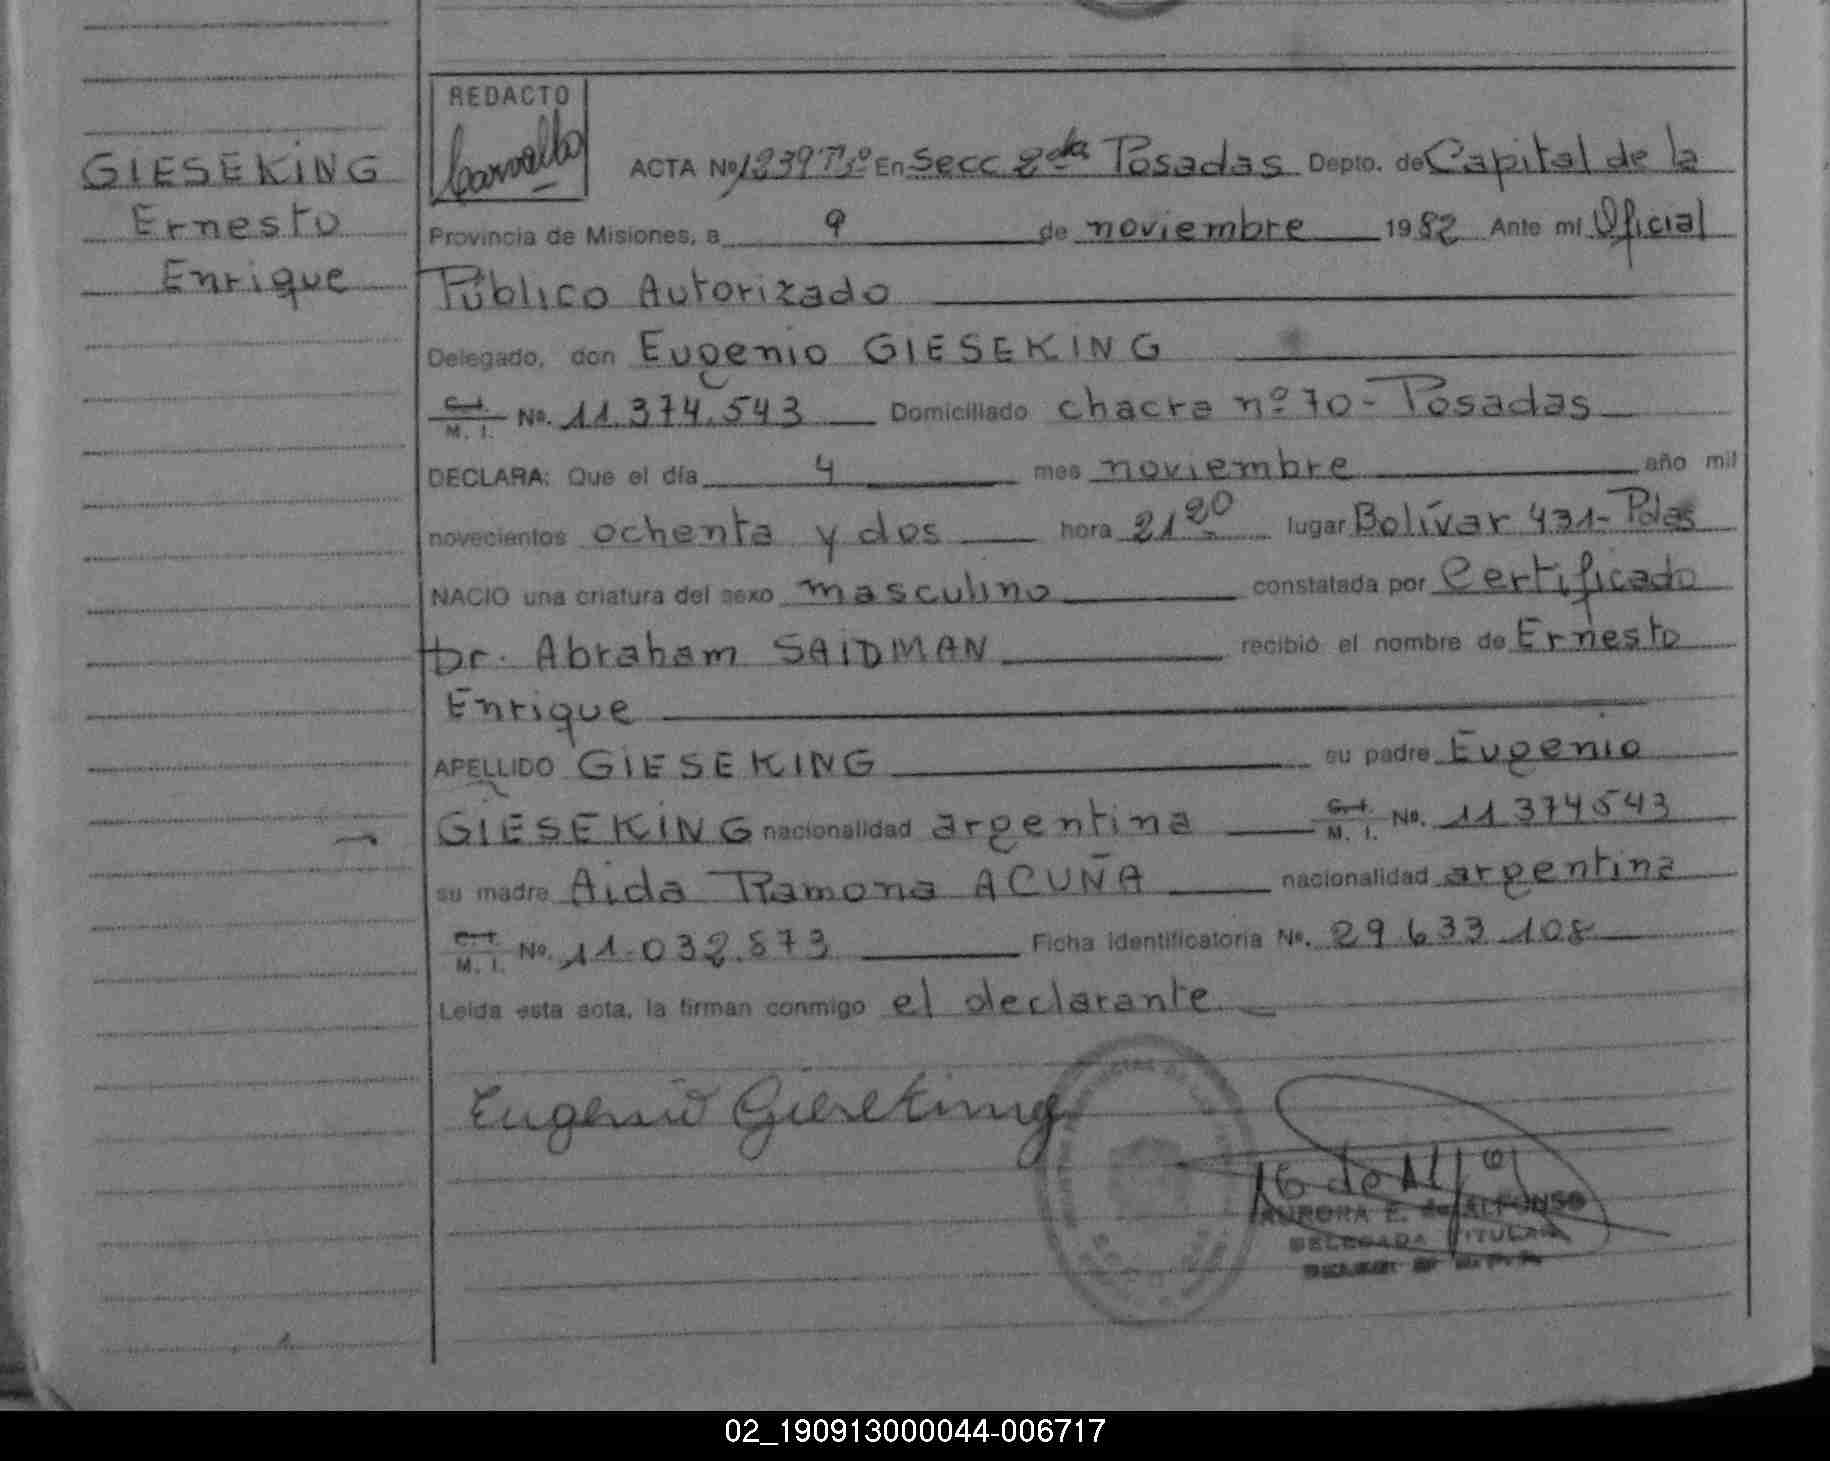 GIESEKING
Ernesto
Enrique
REDACTO
ACTA Nº 1239 Tº 3º En Secc 2da Posadas Depto. de Capital de la
Provincia de Misiones, a 9 de noviembre 1982 Ante mi Oficial
Público Autorizado
Delegado, don Eugenio GIESEKING
C. I. M. I. No. 11.374.543 Domiciliado chacra nº 70 - Posadas
DECLARA: Que el día 4 mes noviembre año mil
novecientos ochenta y dos hora 21 20 lugar Bolívar 431- Pdas
NACIO una criatura del sexo masculino constatada por Certificado
Dr. Abraham SAIDMAN recibió el nombre de Ernesto
Enrique
APELLIDO GIESEKING su padre Eugenio
GIESEKING nacionalidad argentina C. I. M. I. No. 11374543
su madre Aida Ramona ACUÑA nacionalidad argentina
C. I. M. I. No. 11.032.873 Ficha identificatoria No. 29.633.108
Leida esta acta, la firman conmigo el declarante
Eugenio Gieseking
AURORA E. de ALFONSO
DELEGADA TITULAR
02_190913000044-006717